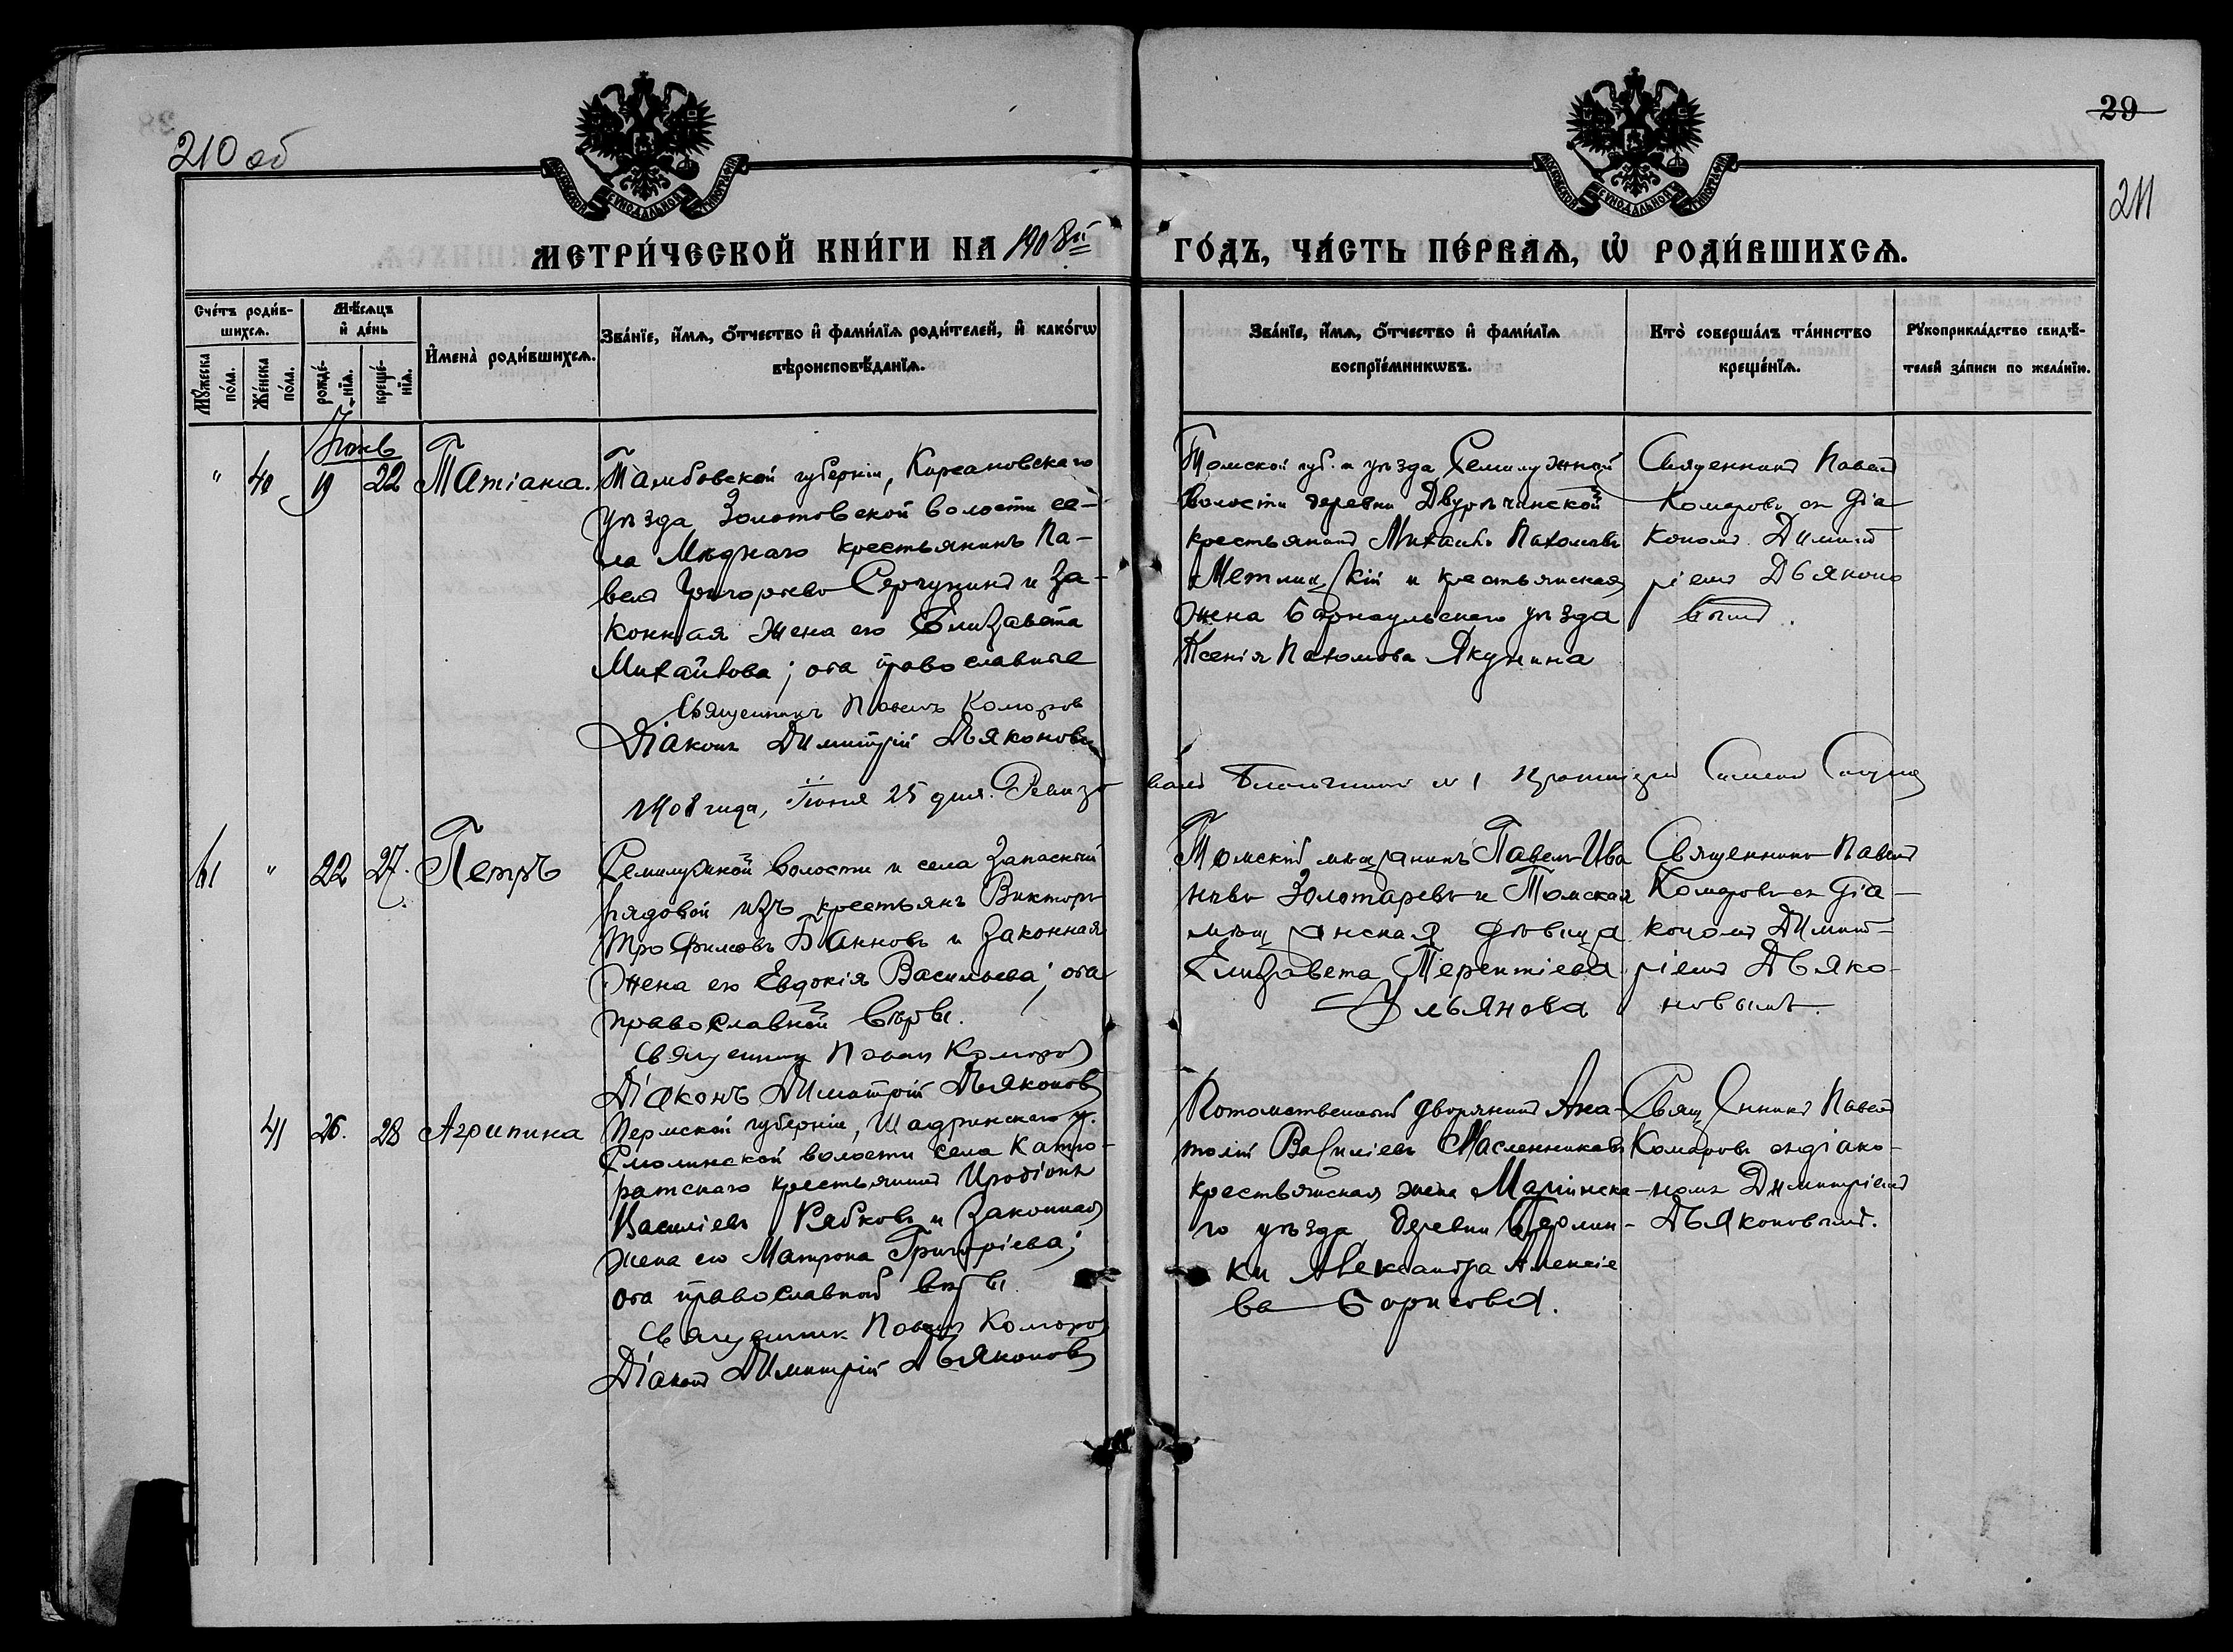 210 об
29
211
МЕТРИ́ЧЕСКОЙ КНИ́ГИ НА 1908й ГО́ДЪ, ЧА́СТЬ ПЕ́РВАѦ, Ѡ РОДИ́ВШИХСѦ.
Сче́тъ роди́в-
шихсѧ.
Мꙋ́жеска по́ла.
Же́нска по́ла.
Мѣ́сяцъ
и҆ де́нь
рожде́-
нїѧ.
креще́-
нїѧ.
И҆мена̀ роди́вшихсѧ.
Зва́нїе, и҆́мѧ, ѻ҆́тчество и҆ фами́лїѧ роди́телей, и҆ како́гѡ
вѣроисповѣ́данїѧ.
Зва́нїе, и҆́мѧ, ѻ҆́тчество и҆ фами́лїѧ
воспрїе́мникѡвъ.
Кто̀ соверша́лъ та́инство
креще́нїѧ.
Рꙋкоприкла́дство свидѣ́-
телей за́писи по жела́нїю.
Іюнь
" 40 19 22 Татіана.
Тамбовской губерніи, Кирсановскаго
уѣзда Золотовской волости се-
ла Мѣднаго крестьянинъ Па-
велъ Григорьевъ Серчунинъ и за-
конная жена его Елизавета
Михайлова; оба православные
Священникъ Павелъ Комаровъ
Діаконъ Димитрій Дьяконовъ
Томской губ. и уѣзда Семилужной
волости деревни Двурѣчинской
крестьянинъ Михаилъ Пахомовъ
Метлицкій и крестьянская
жена Барнаульскаго уѣзда
Ксенія Пахомова Якунина
Священникъ Павелъ
Комаровъ съ діа
кономъ Димит
ріемъ Дьяконо
вымъ.
1908 года, Іюня 25 дня. Ревизовалъ Благочинный № 1 Протоіерей Симеонъ
61 " 22 27. Петръ
Семилужной волости и села запасный
рядовой изъ крестьянъ Викторъ
Трофимовъ Банновъ и законная
жена его Евдокія Васильева; оба
православной вѣры.
Священникъ Павелъ Комаровъ
Діаконъ Димитрій Дьяконовъ
Томскій мѣщанинъ Павелъ Ива
новъ Золотаревъ и Томская
мѣщанская дѣвица
Елизавета Терентіева
Ульянова
Священникъ Павелъ
Комаровъ съ діа-
кономъ Димит-
ріемъ Дьяко-
новымъ.
41 26. 28 Агрипина
Пермской губерніи, Шадринскаго у.
Смолинской волости села Катай-
ратскаго крестьянинъ Иродіонъ
Василіевъ Рябковъ и законная
жена его Матрона Григоріева;
оба православной вѣры.
Священникъ Павелъ Комаровъ
Діаконъ Димитрій Дьяконовъ
Потомственный дворянинъ Ана-
толій Василіевъ Масленниковъ
крестьянская жена Маріинска-
го уѣзда, деревни
ки Александра Алексіе
ва Борисова.
Священникъ Павелъ
Комаровъ съ діако-
номъ Димитріемъ
Дьяконовымъ.